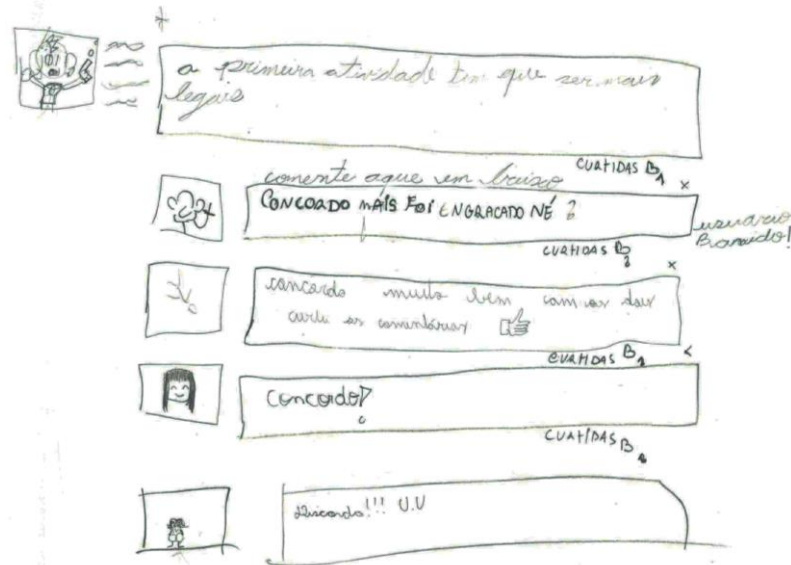 a primeira atividade tem que ser mais
legais
CURTIDAS B 1
comente aque em baixo
CONCORDO MAÍS FOI ENGRACADO NÉ ?
usuario
Banido!
CURTIDAS B 2 x
concordo muito bem com os dois
curti os comentários
CURTIDAS B 1
concordo!
CURTIDAS B
Discordo!!! U.U